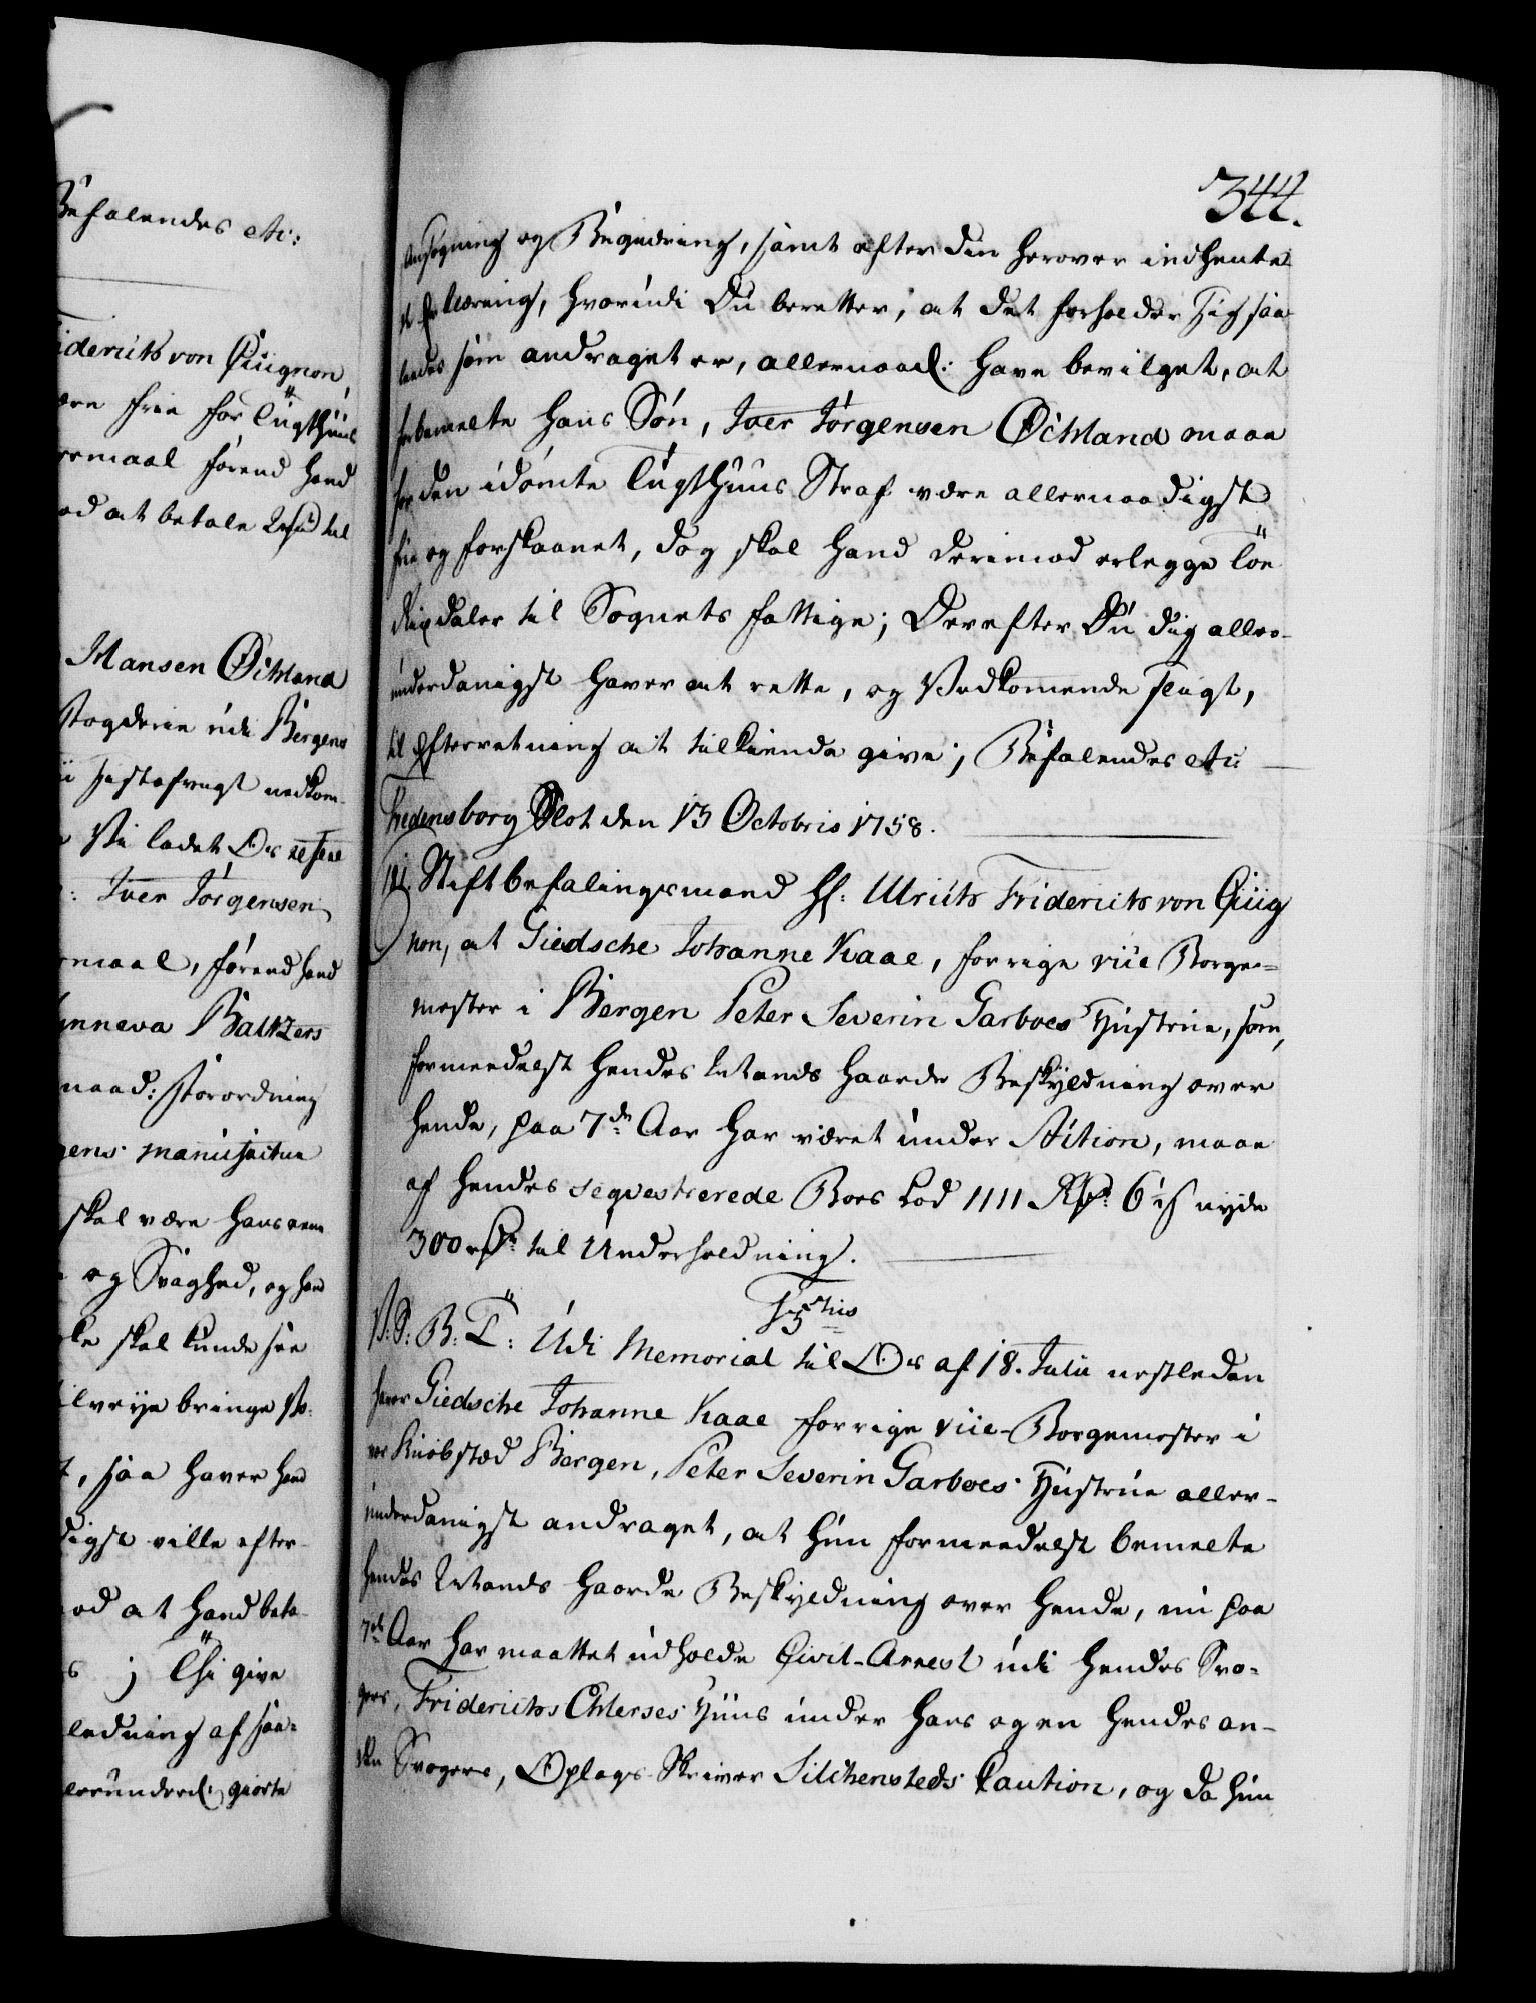 Befalendes etc:
idericks von Cicignon,
ære frie for Tugthuus
ermaal førend hand
od at betale 2 rd til
Hansen Øckland
Fogderie udi Bergens
nedkom-
Vi ladet Os refere
: Iver Jørgensen
rmaal, førend hand
ynneva Baltzers
naad: Forordning
gens manufactur
skal være hans
og Svaghed, og hans
ke skal kunde
ilveye bringe
t, saa haver hand
digst ville efter-
od at hand beta-
s ; Thi give
ledning af saa-
lerunderd: giorte
344.
Ansøgning og Begiæring, samt efter den herover indhente-
de Erklæring, hvorudi Du beretter, at det forholder sig saa-
ledes som andraget er, allernaad: have bevilget, at
forbemelte hans Søn, Iver Jørgensen Øckland maae
for den idømte Tugthuus Straf være allernaadigst
frie og forskaanet, dog skal hand derimod erlegge Toe
Rixdaler til Sognets fattige; Derefter Du dig aller-
underdanigst haver at rette, og Vedkomende sligt,
til Efterretning at tilkiende give; Befalendes etc:
Fredensborg Slot den 13 Octobris 1758.
Til Stiftbefalingsmand Hr: Ulrich Friderich von Cicig
non, at Giedsche Johanne Kaae, forrige vice Borge-
mester i Bergen Peter Severin Garboes Hustrue, som,
formedelst hendes Mands haarde Beskyldning over
hende, paa 7de Aar har været under Action, maae
af hendes seqvestrerede Boes Lod 1111 Rdr: 6 s nyde
300 rdr: til Underholdning.
F 5tius
V: S: B: T: Udi Memorial til Os af 18. Julii nestleden
haver Giedsche Johanne Kaae forrige vice-Borgemester i
vor Kiøbsted Bergen, Peter Severin Garboes Hustrue aller-
underdanigst andraget, at hun formedelst bemelte
hendes Mands haarde Beskyldning over hende, nu paa
7de Aar har maattet udholde Civil-Arrest udi hendes Svo-
gers, Friderichs Ehlerses Huus under hans og en hendes an-
den Svogers, Oplags-Skriver Silchensteds Caution, og da hun